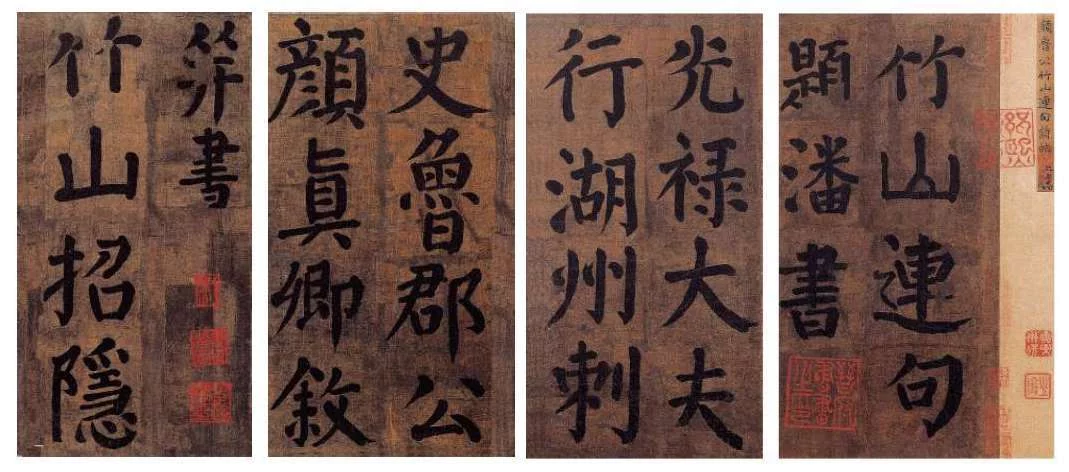 顏魯公竹山連句
竹山連句
題潘書
光禄大夫
行湖州刺
史魯郡公
顏真卿敘
并書
竹山招隱